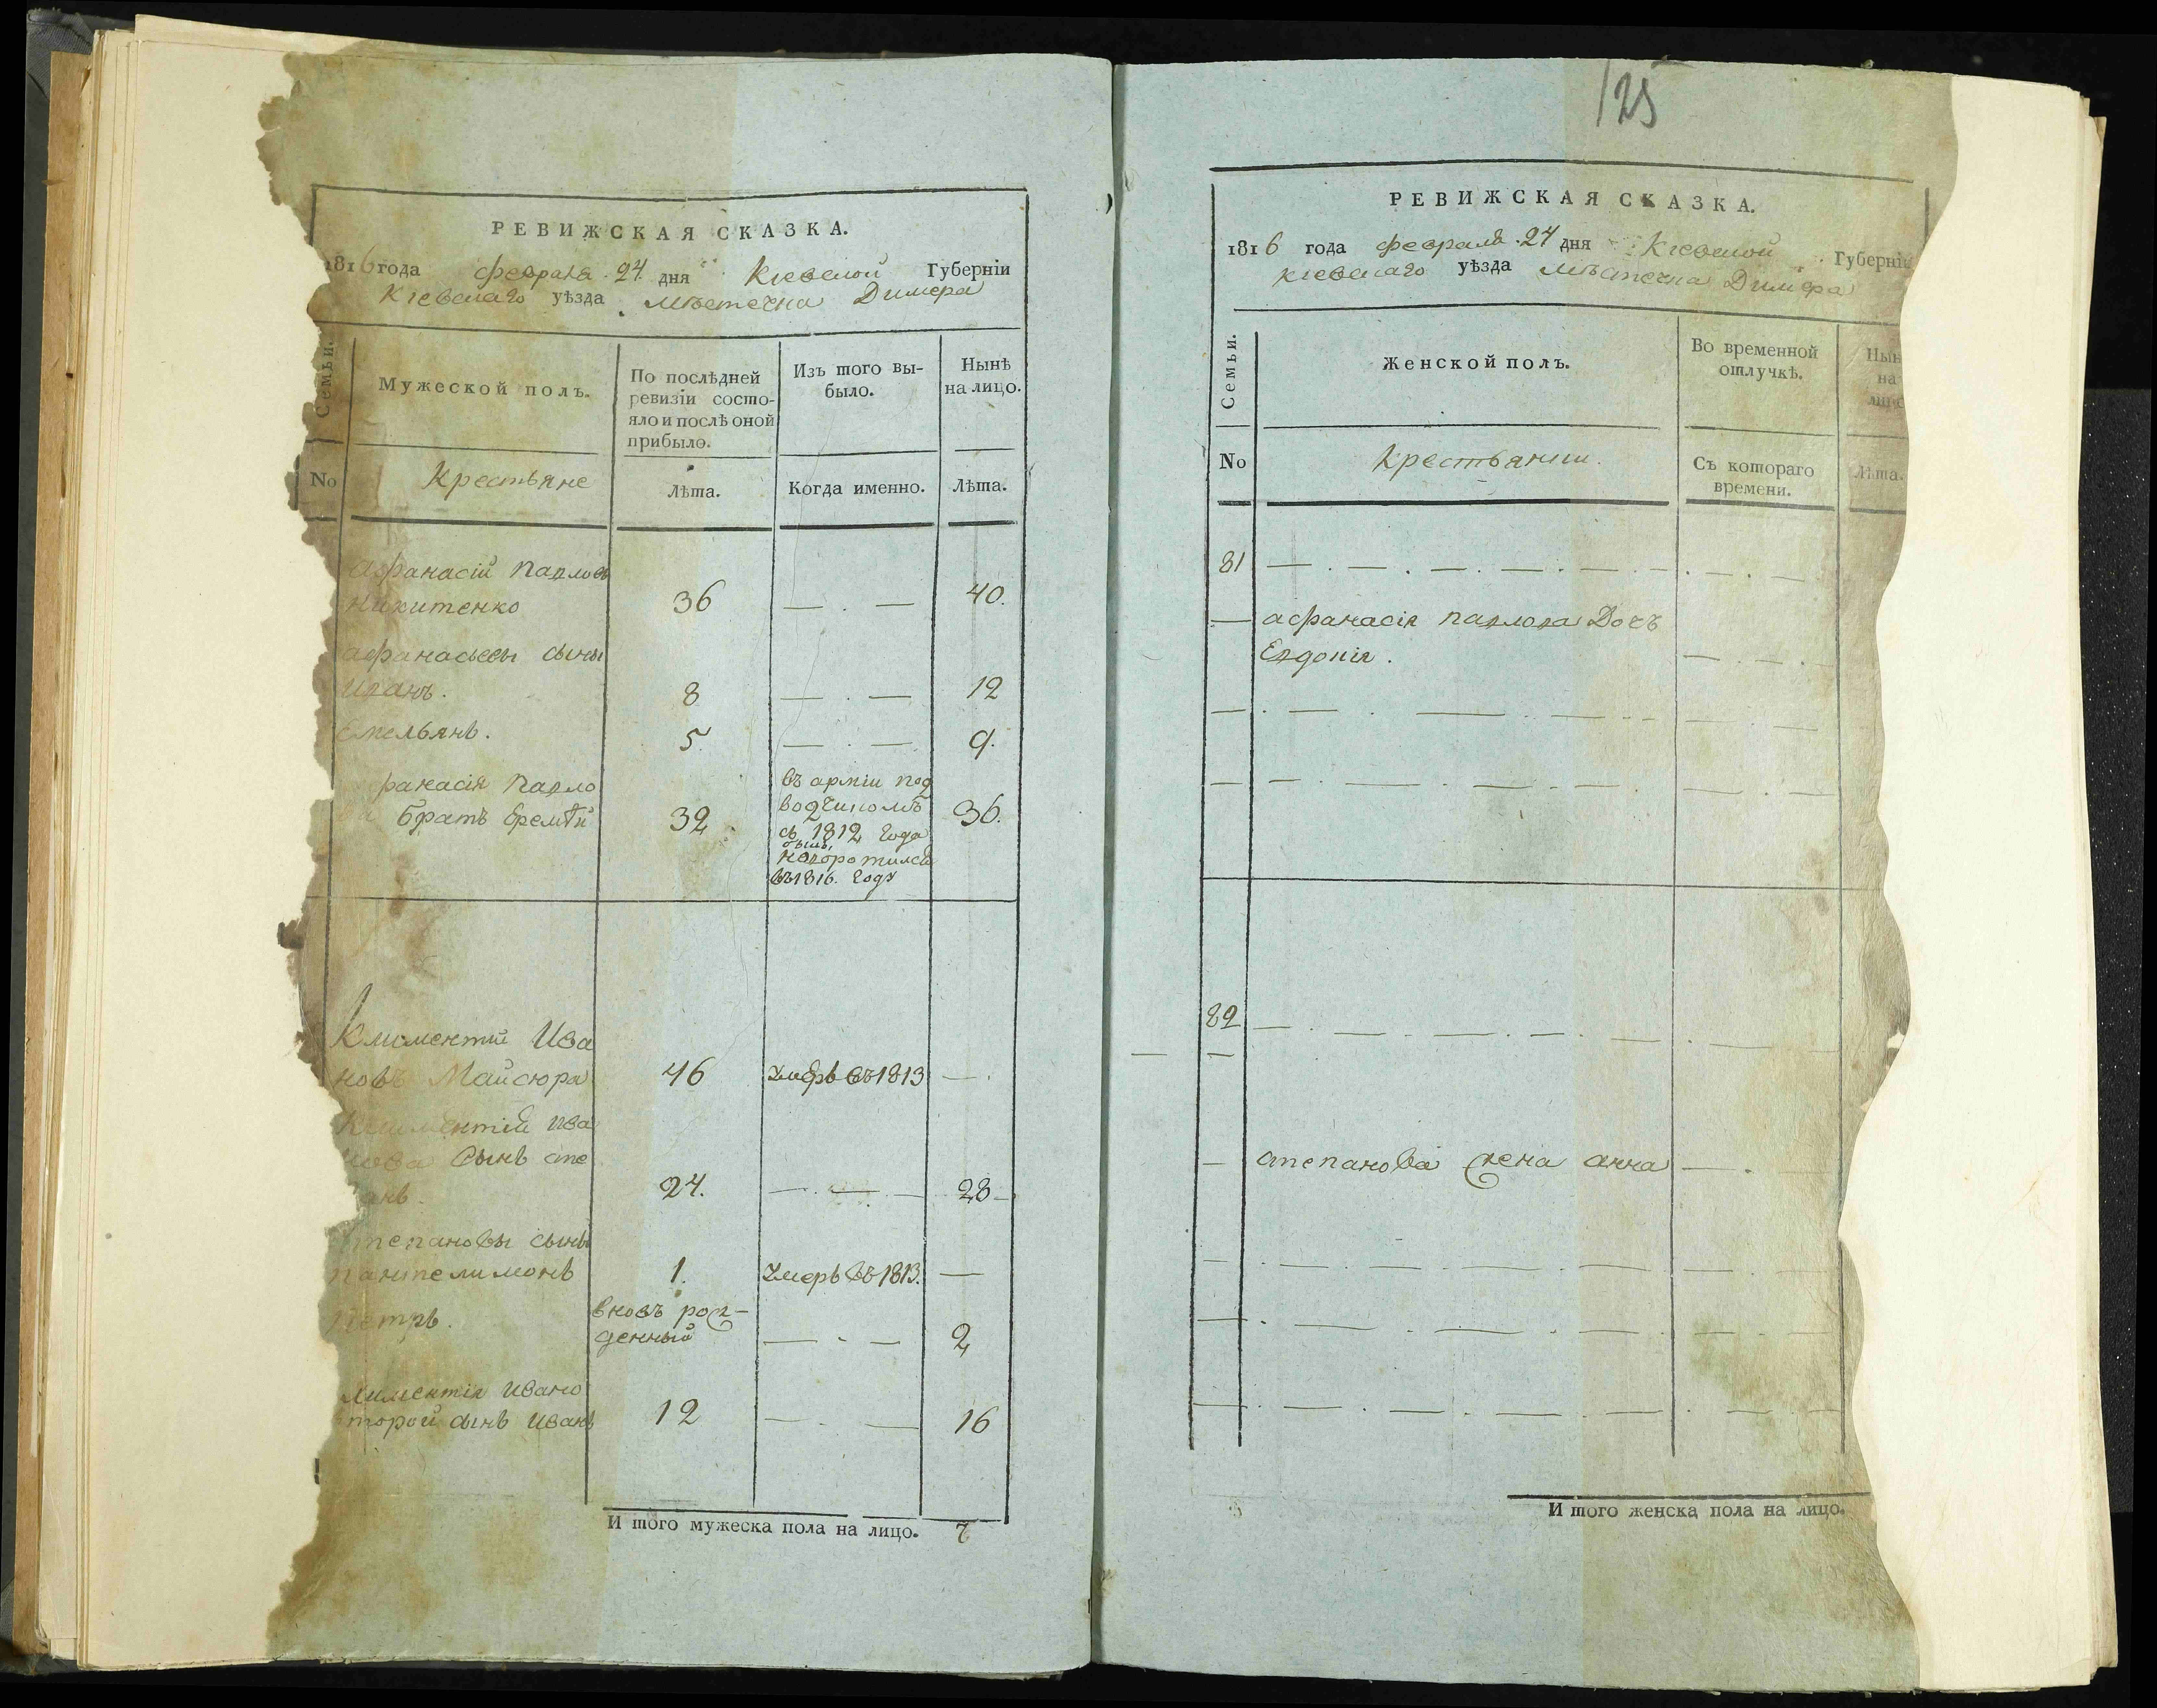 125
РЕВИЖСКАЯ СКАЗКА.
1816 года февраля 24 дня Кіевской Губерніи
Кіевскаго уѣзда мѣстечка Димера
Семьи.
Мужеской полъ.
По послѣдней ревизіи состо-
яло и послѣ оной
прибыло.
Изъ того вы-
было.
Нынѣ
на лицо.
No
Крестьяне
Лѣта.
Когда именно.
Лѣта.
афанасій павловъ
никитенко 36 — . — 40.
афанасьевы сыны
иванъ. 8 — . — 12
Емельянъ. 5. — . — 9.
фанасія павло
ва братъ Еремѣй 32. 36.
въ арміи под
водчикомъ
съ 1812 года
возвратился
въ 1816. году
Климентій Ива
новъ Майсюра 46 умеръ въ 1813 — .
климентій ива
нова сынъ сте
анъ. 24. — . — . — 28
степановы сыны
пантелимонъ 1. умеръ въ 1813. —
петръ. вновь рож-
денный — . — 2
лиментія ивано
второй сынъ иванъ 12 — . — 16
И того мужеска пола на лицо. 7
РЕВИЖСКАЯ СКАЗКА.
1816 года февраля 24 дня Кіевской Губерніи
Кіевскаго уѣзда мѣстечка Димера
Семьи.
Женской полъ.
Во временной
отлучкѣ.
Нын
на
лицо
No
крестьянки.
Съ котораго
времени.
Лѣта.
81 — . — . — . — . — . —
— афанасія павлова дочъ
Евдокія. — . —
82 — . — . — . — . — . —
— степанова жена анна — .
И того женска пола на лицо.